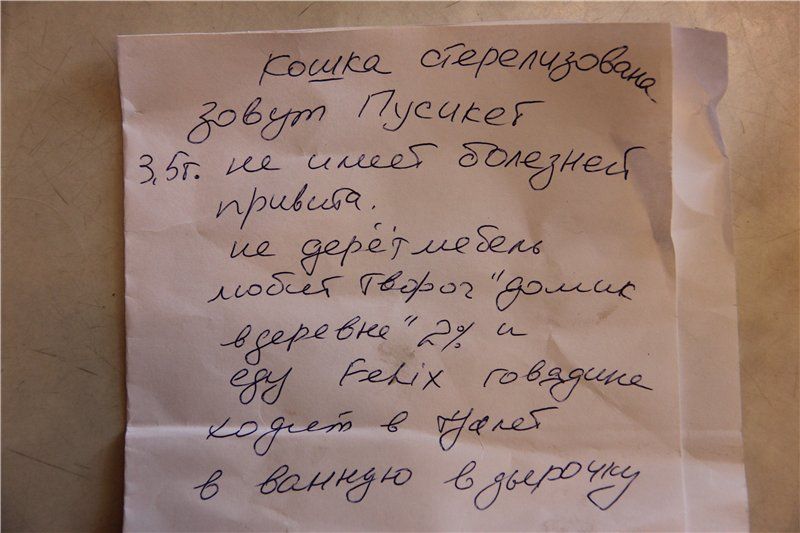 кошка стерелизована
зовут Пусикет
3,5г. не имеет болезней
привита.
не дерёт мебель
любит творог "домик
в деревне" 2% и
еду Felix говядина
ходит в туалет
в ванную в дырочку